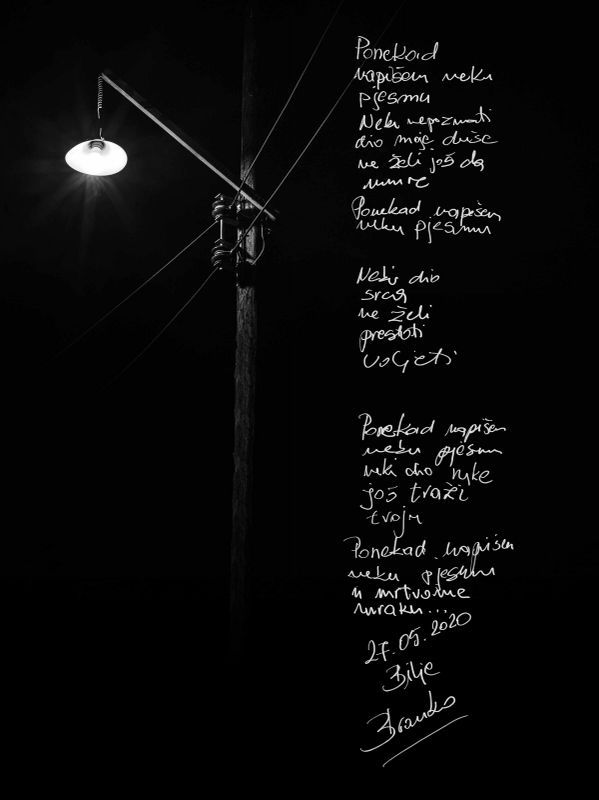 Ponekad
napišem neku
pjesmu
Neki nepoznati
dio moje duše
ne želi još da
umre
Ponekad napišem
neku pjesmu
Neki dio
srca
ne želi
prestati
voljeti
Ponekad napišem
neku pjesmu
neki dio ruke
još traži
tvoju
Ponekad napišem
neku pjesmu
u mrtvome
mraku...
27.05.2020
Bilje
Branko